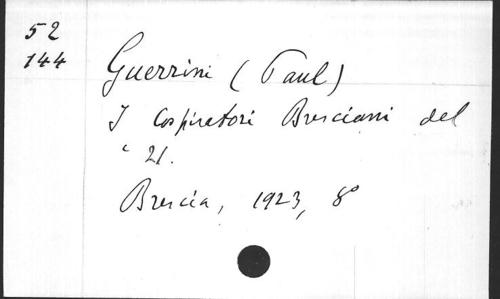 52
144
Guerrini (Paul)
I Cospiratori Bresciani del
'21.
Brescia, 1923, 8°